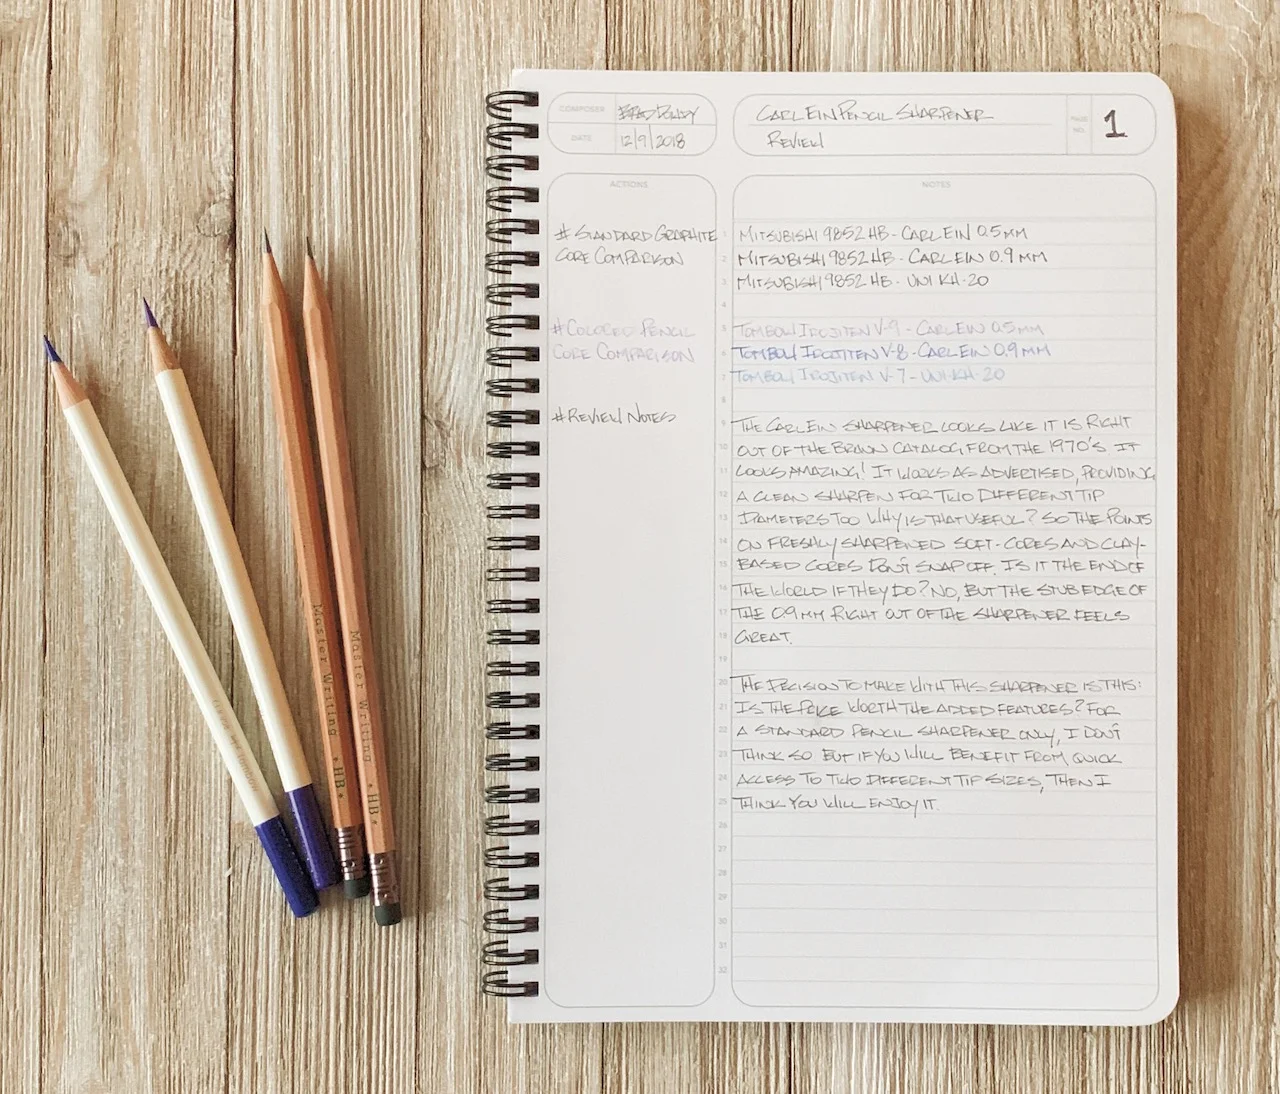 COMPOSER BRAD DOWDY
DATE 12/9/2018
CARL EIN PENCIL SHARPENER
REVIEW
PAGE NO. 1
ACTIONS
# STANDARD GRAPHITE
CORE COMPARISON
#COLORED PENCIL
CORE COMPARISON
#REVIEW NOTES
NOTES
1 MITSUBISHI 9852 HB - CARL EIN 0.5MM
2 MITSUBISHI 9852 HB - CARL EIN 0.9MM
3 MITSUBISHI 9852 HB - UNI KH-20
4
5 TOMBOW IROJITEN V-9 - CARL EIN 0.5MM
6 TOMBOW IROJITEN V-8 - CARL EIN 0.9MM
7 TOMBOW IROJITEN V-7 - UNI KH-20
8
9 THE CARL EIN SHARPENER LOOKS LIKE IT IS RIGHT
10 OUT OF THE BRAUN CATALOG FROM THE 1970'S. IT
11 LOOKS AMAZING! IT WORKS AS ADVERTISED, PROVIDING
12 A CLEAN SHARPEN FOR TWO DIFFERENT TIP
13 DIAMETERS TOO. WHY IS THAT USEFUL? SO THE POINTS
14 ON FRESHLY SHARPENED SOFT-CORES AND CLAY-
15 BASED CORES DON'T SNAP OFF. IS IT THE END OF
16 THE WORLD IF THEY DO? NO, BUT THE STUB EDGE OF
17 THE 0.9MM RIGHT OUT OF THE SHARPENER FEELS
18 GREAT.
19
20 THE DECISION TO MAKE WITH THIS SHARPENER IS THIS:
21 IS THE PRICE WORTH THE ADDED FEATURES? FOR
22 A STANDARD PENCIL SHARPENER ONLY, I DON'T
23 THINK SO. BUT IF YOU WILL BENEFIT FROM QUICK
24 ACCESS TO TWO DIFFERENT TIP SIZES, THEN I
25 THINK YOU WILL ENJOY IT.
26
27
28
29
30
31
32
Master Writing * HB *
Master Writing * HB *